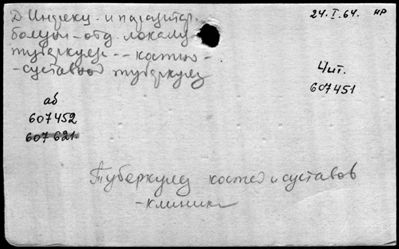 Д Инфекц. и паразитар.
болезн - отд. локализ
туберкулез -- костно-
-суставной туберкулез
24.I.64. НР
Чит.
607451
аб
607452
607621
Туберкулез костей и суставов
-клиника